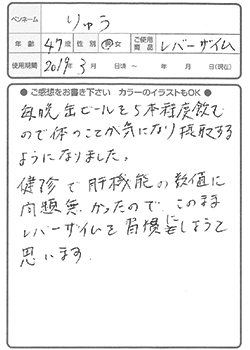 ペンネーム りゅう
年齢 47歳 性別 男・女 ご使用商品 レバーザイム
使用期間 2019年 3月 日頃 ~ 年 月 日(現在)
● ご感想をお書き下さい カラーのイラストもOK ●
毎晩缶ビールを5本程度飲む
ので体のことが気になり摂取する
ようになりました。
健診で肝機能の数値に
問題無かったので、このまま
レバーザイムを習慣にしようと
思います。